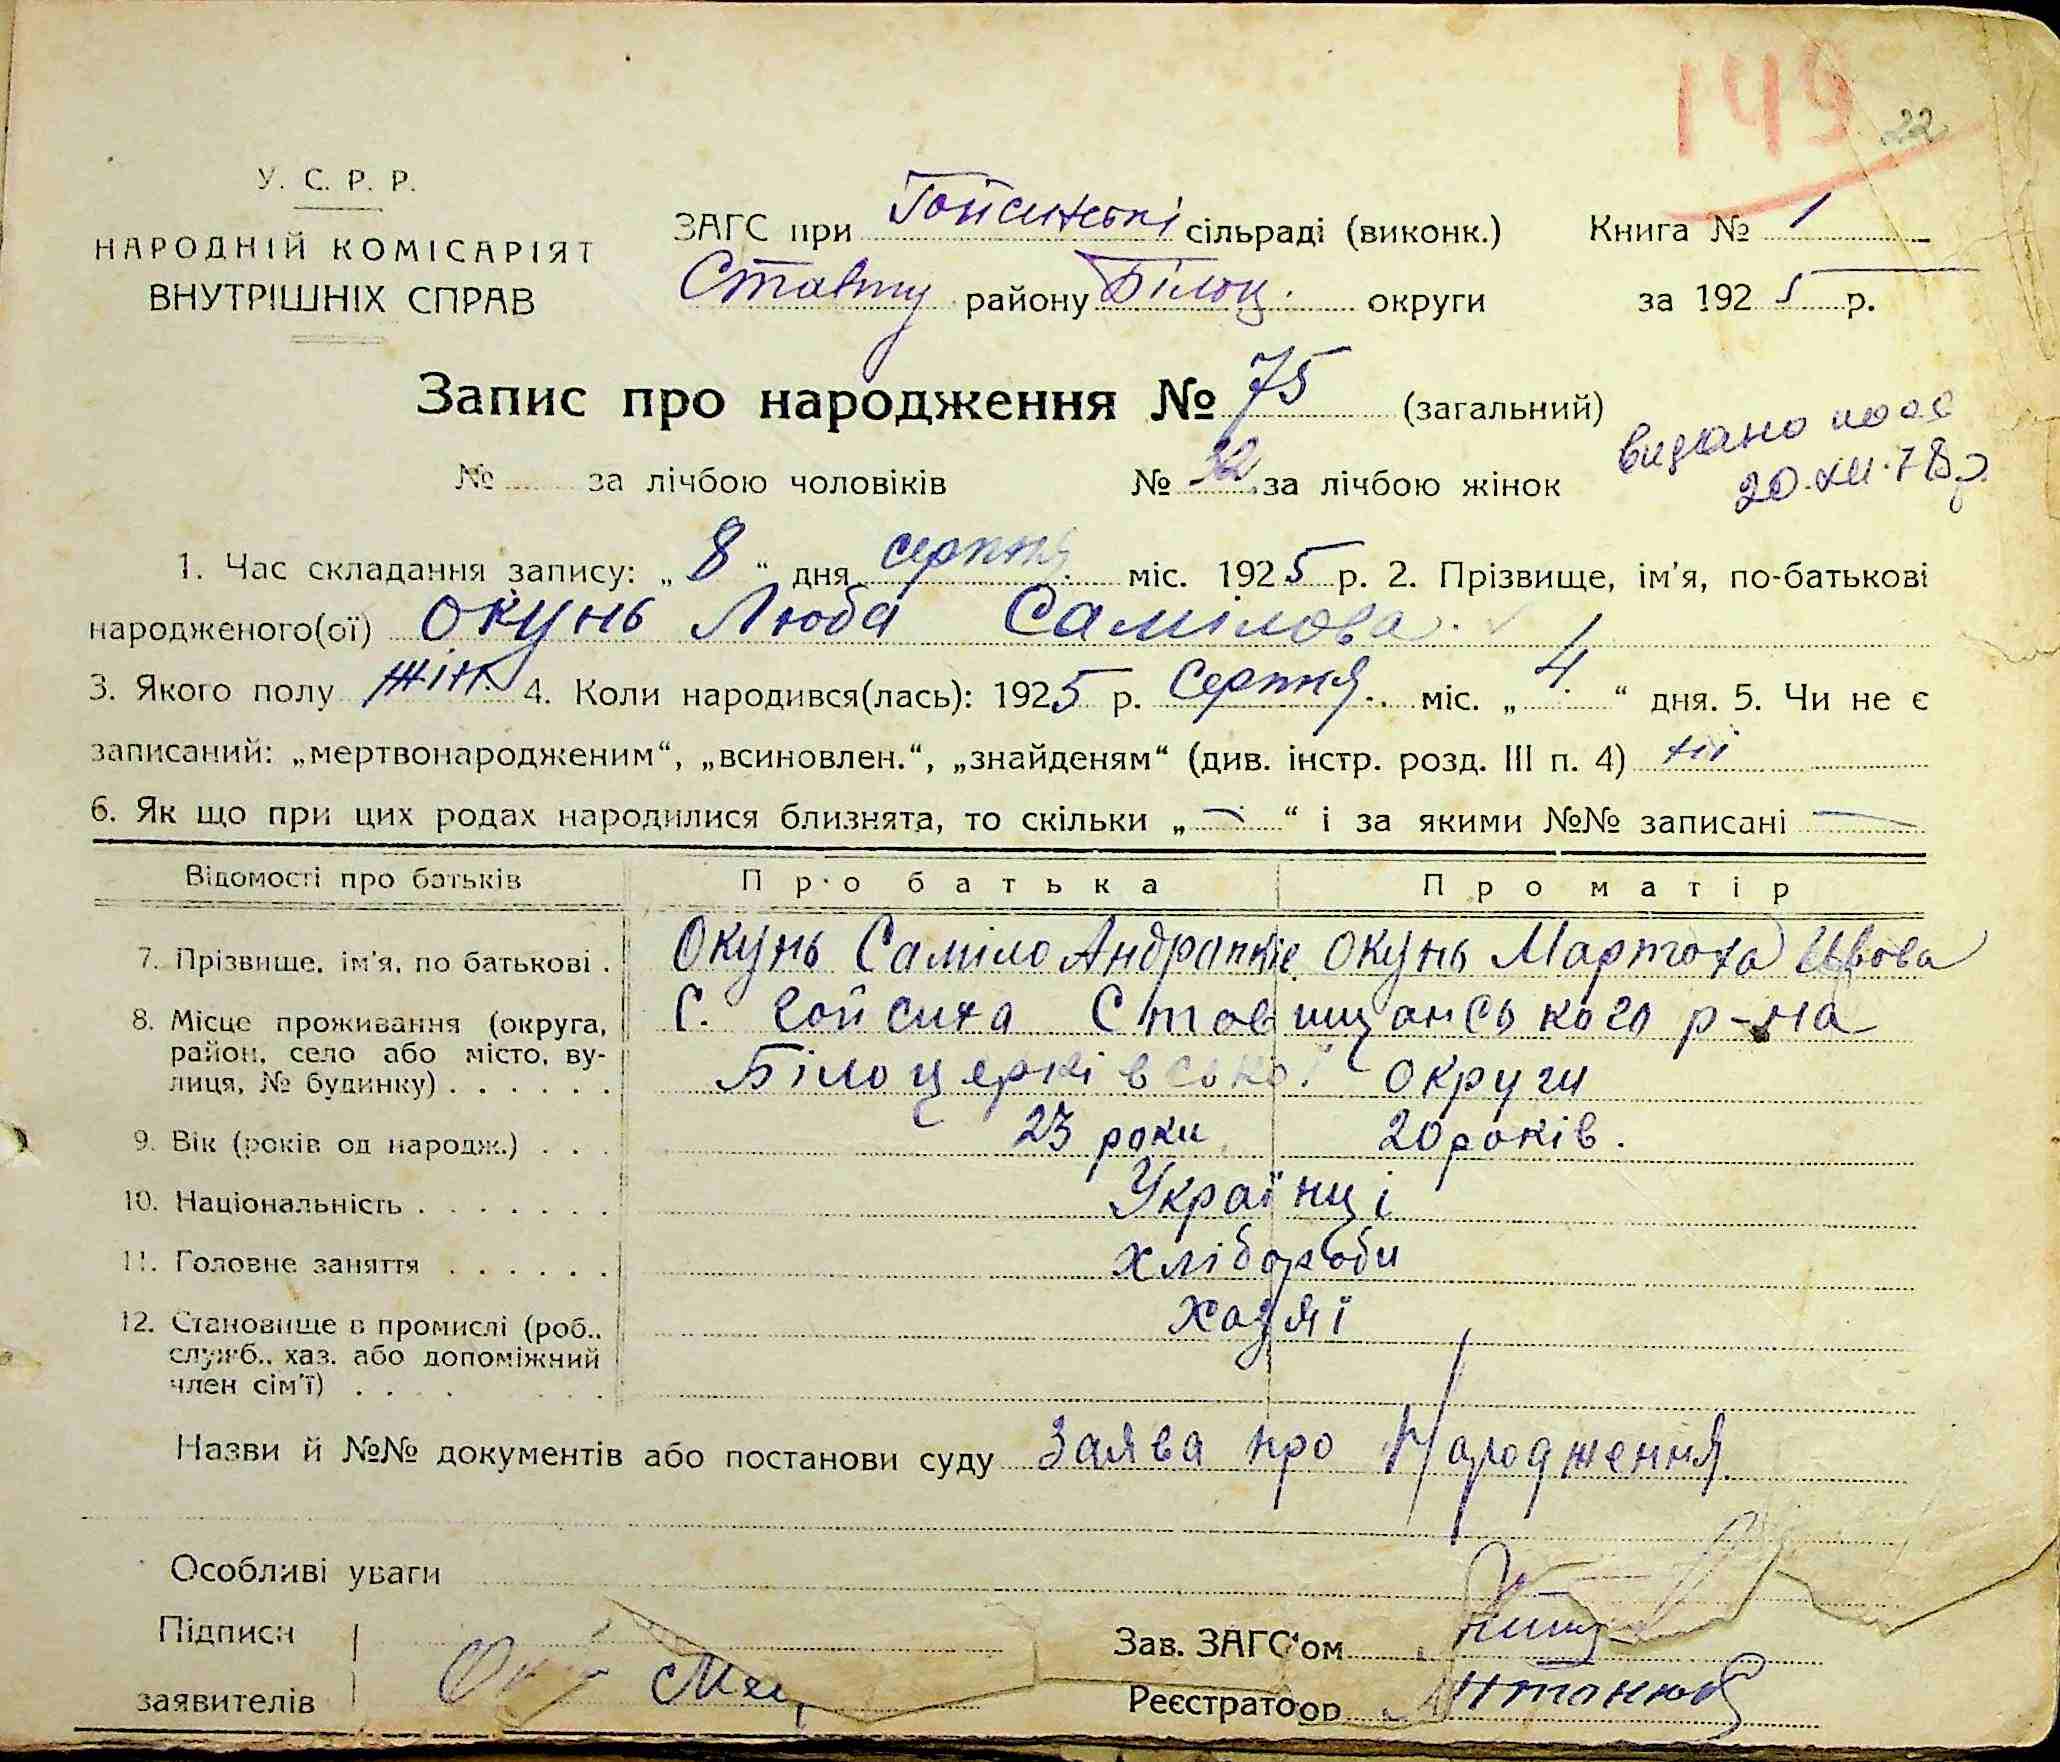 149
22
У. С. Р. Р.
НАРОДНІЙ КОМІСАРІЯТ
ВНУТРІШНІХ СПРАВ
ЗАГС при Гойсинські сільраді (виконк.)
Ставищ району Білоц. округи
Книга № 1
за 1925 р.
Запис про народження № 75 (загальний)
№ за лічбою чоловіків № 32 за лічбою жінок
видано
20.XII.78р.
1. Час складання запису: „8“ дня серпня міс. 1925 р. 2. Прізвище, ім'я, по-батькові
народженого(ої) Окунь Люба Самілова.
3. Якого полу жін. 4. Коли народився(лась): 1925 р. Серпня міс. „4“ дня. 5. Чи не є
записаний: „мертвонародженим“, „всиновлен.“, „знайденям“ (див. інстр. розд. III п. 4) ні
6. Як що при цих родах народилися близнята, то скільки „—“ і за якими №№ записані —
Відомості про батьків Про батька Про матір
7. Прізвище, ім'я, по батькові . Окунь Саміло Окунь Ивова
8. Місце проживання (округа, район, село або місто, вулиця, № будинку) . . . . . . С. Гойсина Ставищанського р-на
Білоцерківської округи
9. Вік (років од народж.) . . . 23 роки 20 років.
10. Національність . . . . . . . Українці
11. Головне заняття . . . . . . хлібороби
12. Становище в промислі (роб., служб., хаз. або допоміжний член сім'ї) . . . . хазяї
Назви й №№ документів або постанови суду Заява про Народження
Особливі уваги
Підписи
заявителів
Зав. ЗАГС'ом
Реєстратоор